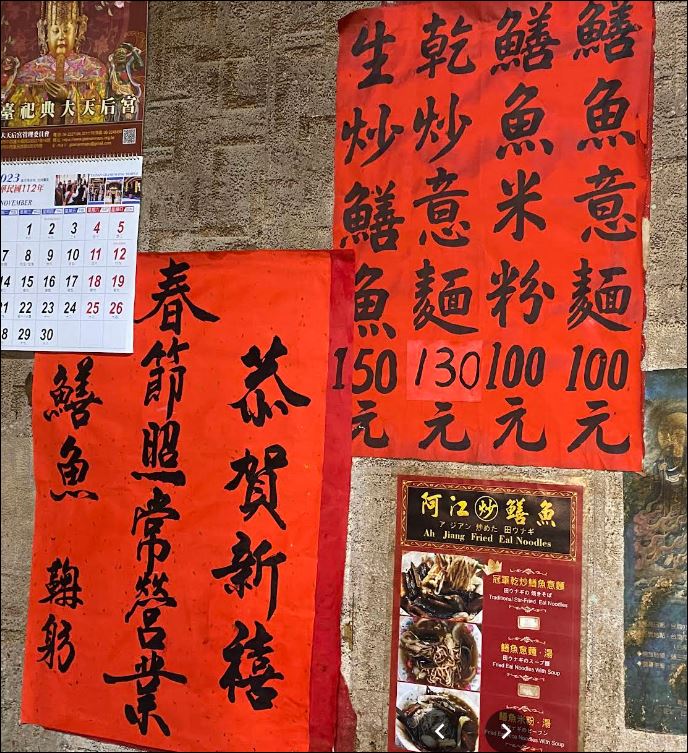 臺祀典大天后宮
大天后宮管理委員會
2023
華民國112年
NOVEMBER
1 2 3 4 5
7 8 9 10 11 12
14 15 16 17 18 19
21 22 23 24 25 26
28 29 30
鱔魚意麵100元
鱔魚米粉100元
乾炒意麵130元
生炒鱔魚150元
恭賀新禧
春節照常營業
鱔魚 鞠躬
阿江炒鱔魚
ア ジアン 炒めた 田ウナギ
Ah Jiang Fried Eal Noodles
冠軍乾炒鱔魚意麵
田ウナギの 焼きそば
Traditional Stir-Fried Eal Noodles
鱔魚意麵·湯
田ウナギのスープ麺
Fried Eal Noodles With Soup
鱔魚米粉·湯